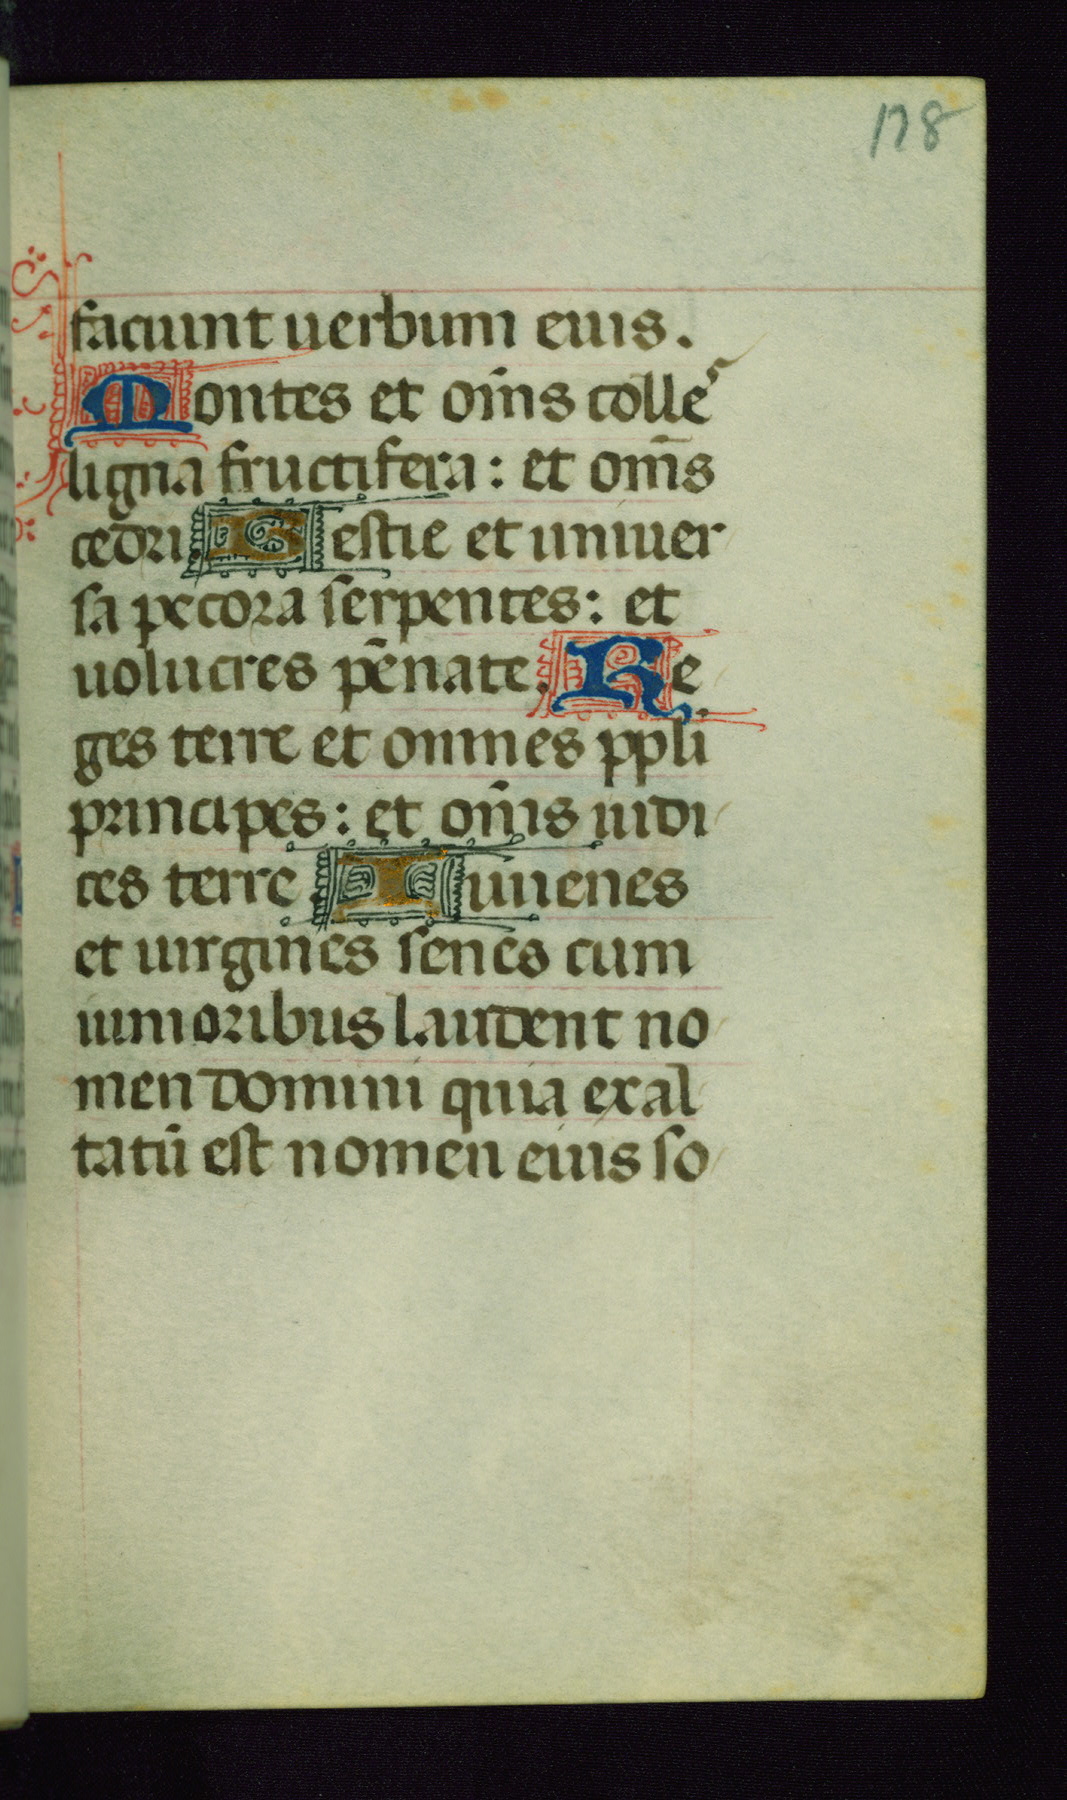 178
faciunt uerbum eius.
Montes et om̄s colle
ligna fructifera: et om̄s
cedri. Bestie et uniuer
sa pecora serpentes: et
uolucres pēnate. Re
ges terre et onmes ppli
principes: et om̄is iudi
ces terre. Iuuenes
et uirgines senes cum
iunioribus laudent no
men domini quia exal
tatū est nomen eius so